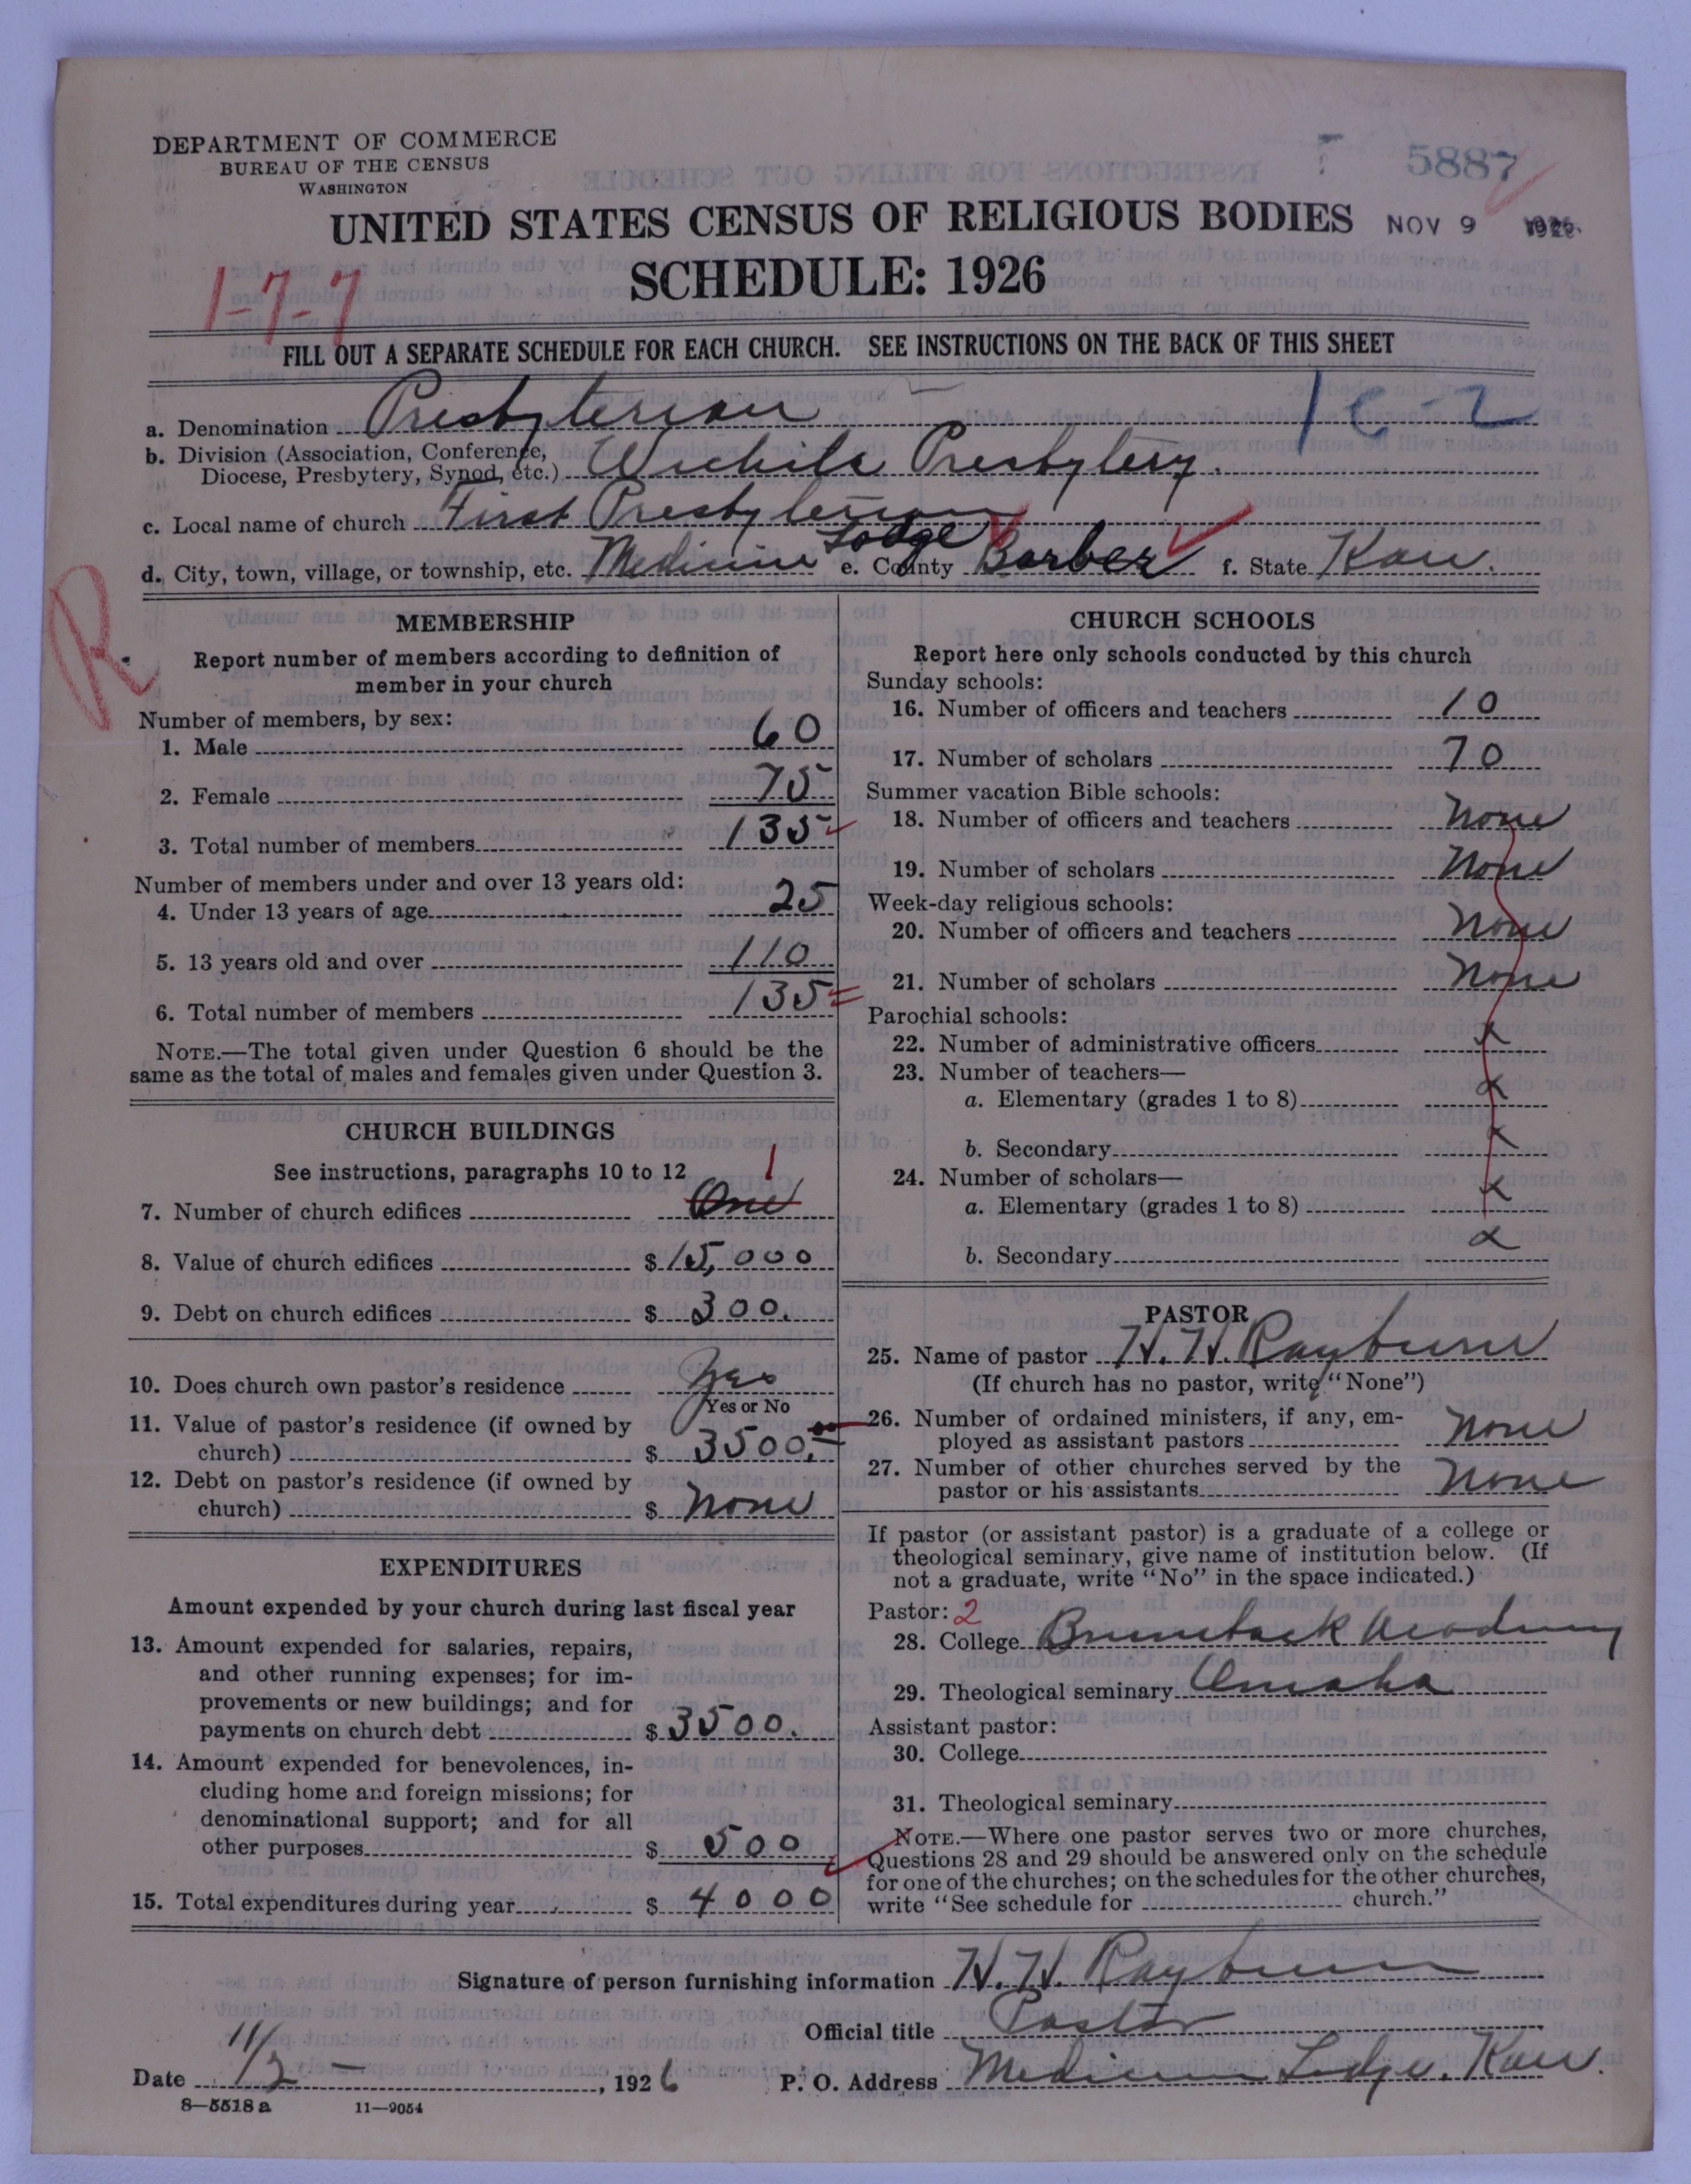 DEPARTMENT OF COMMERCE
BUREAU OF THE CENSUS
WASHINGTON
5887
UNITED STATES CENSUS OF RELIGIOUS BODIES NOV 9
SCHEDULE: 1926
1-7-7
FILL OUT A SEPARATE SCHEDULE FOR EACH CHURCH. SEE INSTRUCTIONS ON THE BACK OF THIS SHEET
a. Denomination Presbyterian
b. Division (Association, Conference,
Diocese, Presbytery, Synod, etc.) Wichita Presbytery.
c. Local name of church First Presbyterian
d. City, town, village, or township, etc. Medicine Lodge e. County Barber f. State Kan.
R
MEMBERSHIP
Report number of members according to definition of
member in your church
Number of members, by sex:
1. Male 60
2. Female 75
3. Total number of members 135
Number of members under and over 13 years old:
4. Under 13 years of age 25
5. 13 years old and over 110
6. Total number of members 135
NOTE.—The total given under Question 6 should be the
same as the total of males and females given under Question 3.
CHURCH BUILDINGS
See instructions, paragraphs 10 to 12
1
7. Number of church edifices One
8. Value of church edifices $ 15,000
9. Debt on church edifices $ 300.
10. Does church own pastor's residence Yes
Yes or No
11. Value of pastor's residence (if owned by
church) $ 3500.00
12. Debt on pastor's residence (if owned by
church) $ None
EXPENDITURES
Amount expended by your church during last fiscal year
13. Amount expended for salaries, repairs,
and other running expenses; for im-
provements or new buildings; and for
payments on church debt $ 3500.
14. Amount expended for benevolences, in-
cluding home and foreign missions; for
denominational support; and for all
other purposes $ 500
15. Total expenditures during year $ 4000
CHURCH SCHOOLS
Report here only schools conducted by this church
Sunday schools:
16. Number of officers and teachers 10
17. Number of scholars 70
Summer vacation Bible schools:
18. Number of officers and teachers None
19. Number of scholars None
Week-day religious schools:
20. Number of officers and teachers None
21. Number of scholars None
Parochial schools:
22. Number of administrative officers x
23. Number of teachers—
a. Elementary (grades 1 to 8) x
b. Secondary x
24. Number of scholars—
a. Elementary (grades 1 to 8) x
b. Secondary x
PASTOR
25. Name of pastor H. H. Rayburn
(If church has no pastor, write "None")
26. Number of ordained ministers, if any, em-
ployed as assistant pastors None
27. Number of other churches served by the
pastor or his assistants None
If pastor (or assistant pastor) is a graduate of a college or
theological seminary, give name of institution below. (If
not a graduate, write "No" in the space indicated.)
Pastor: 2
28. College Academy
29. Theological seminary Omaha
Assistant pastor:
30. College
31. Theological seminary
NOTE.—Where one pastor serves two or more churches,
Questions 28 and 29 should be answered only on the schedule
for one of the churches; on the schedules for the other churches,
write "See schedule for church."
Signature of person furnishing information H. H. Rayburn
Official title Pastor
Date 11/2 — , 1926 P. O. Address Medicine Lodge, Kan.
8—5518 a 11—9054